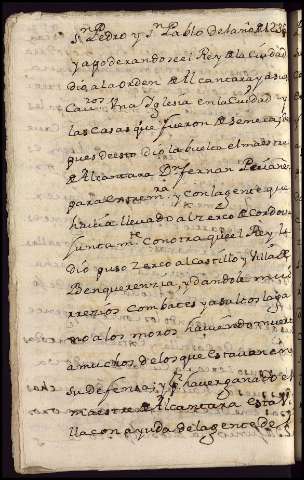 Sn. Pedro y Sn. Pablo del año de 1236
y apoderandose el Rey de la Ciudad
dio a la orden de Alcantara y a sus
Cavros. Una Iglesia en la Ciudad y
las Casas que fueron de Seneca, des
pues de esto dio la buelta el maestre
de Alcantara Dn. fernan Perianez
para Estremra. y con la gente que
havia llevado al zerco de Cordova
juntamte. con otra que el Rey le
dio puso zerco al Castillo y Villa de
Benquerenzia, y dandole mui
rrezios combates y asaltos la ga
no a los moros haviendo muerto
a muchos de los que estavan en
su defensa; y por haver ganado el
maestre de Alcantara esta Vi
lla con ayuda de la gente de